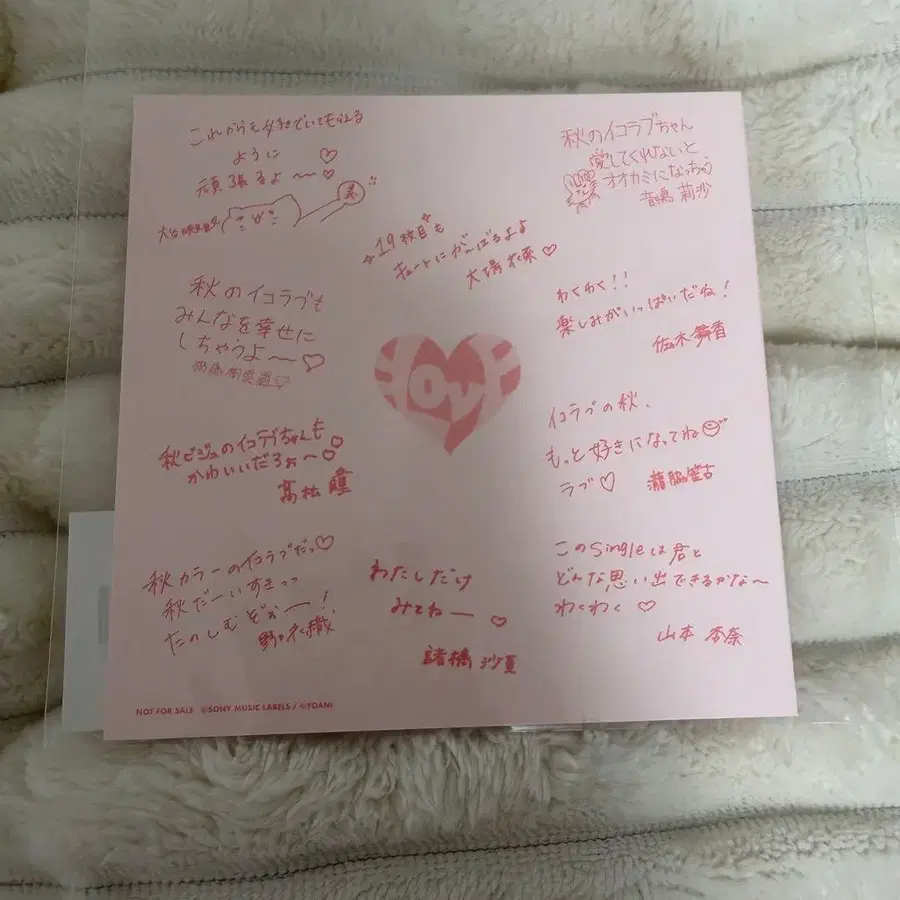 これからも好きでいてもらえる
ように♡
頑張るよ〜♡
大谷映美里
秋のイコラブちゃん
愛してくれないと
オオカミになっちゃう
音嶋 莉沙
19枚目も
キュートにがんばるよ
大場花菜♡
秋のイコラブも
みんなを幸せに
しちゃうよ〜♡
齊藤樹愛羅♡
わくわく!!
楽しみがいっぱいだね!
佐々木舞香
LOVE
秋ビジュのイコラブちゃんも♡
かわいいだろぉ〜♡
髙松 瞳
イコラブの秋、
もっと好きになってね
ラブ♡ 瀧脇笙古
秋カラーのイコラブだっ♡
秋だーいすきっっ
たのしむぞぉー!
野口衣織
わたしだけ
みてねー♡
諸橋 沙夏
このSingleは君と
どんな思い出できるかな〜
わくわく♡
山本 杏奈
NOT FOR SALE ©SONY MUSIC LABELS / ©YOANI